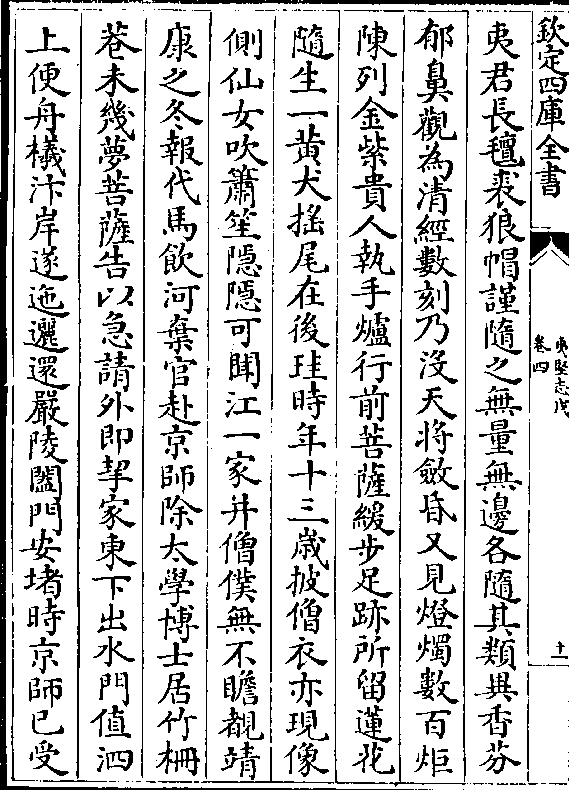 欽定四庫全書
夷堅志戊
卷四
十一
夷君長氊裘狼帽謹隨之無量無邊各隨其類異香芬
郁鼻觀為清經數刻乃没天將斂昏又見燈燭數百炬
陳列金紫貴人執手爐行前菩薩緩步足跡所留蓮花
隨生一黄犬摇尾在後珪時年十三歲披僧衣亦現像
側仙女吹簫笙隠隠可聞江一家并僧僕無不瞻覩靖
康之冬報代馬飲河棄官赴京師除太學博士居竹柵
巷未幾夢菩薩告以急請外即挈家東下出水門值泗
上便舟檥汴岸遂迤邐還嚴陵闔門安堵時京師已受